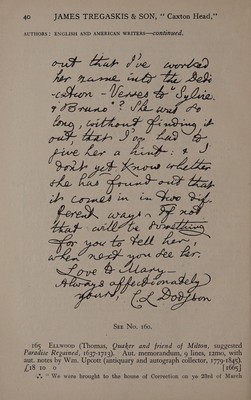 40 JAMES TREGASKIS & SON, "Caxton Head,"
AUTHORS: ENGLISH AND AMERICAN WRITERS—continued.
out that I've worked
her name into the Dedi-
-cation-Verses to "Sylvie
& Bruno"? She was so
long, without finding it
out, that I had to
give her a hint: & I
don't yet know whether
she has found out that
it comes in in two dif-
ferent ways. If not
that will be something
for you to tell her,
when next you see her.
Love to Mary—
Always affectionately
yours, C L Dodgson
SEE No. 160.
165 ELLWOOD (Thomas, Quaker and friend of Milton, suggested
Paradise Regained, 1637-1713). Aut. memorandum, 9 lines, 12mo, with
aut. notes by Wm. Upcott (antiquary and autograph collector, 1779-1845).
£18 10 0 [1665]
∴ We were brought to the house of Correction on ye 23rd of March